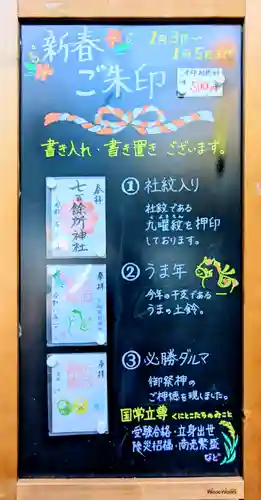 新春
ご朱印
1月3日〜
1月5日まで
500円
書き入れ・書き置き ございます。
奉拝
七百餘所神社
①社紋入り
社紋である
九曜紋を押印
しております。
奉拝
②うま年
今年の干支である
うまの土鈴。
奉拝
③必勝ダルマ
御祭神の
ご神徳を現しました。
国常立尊 くにとこたちのみこと
受験合格・立身出世
除災招福・商売繁盛
など